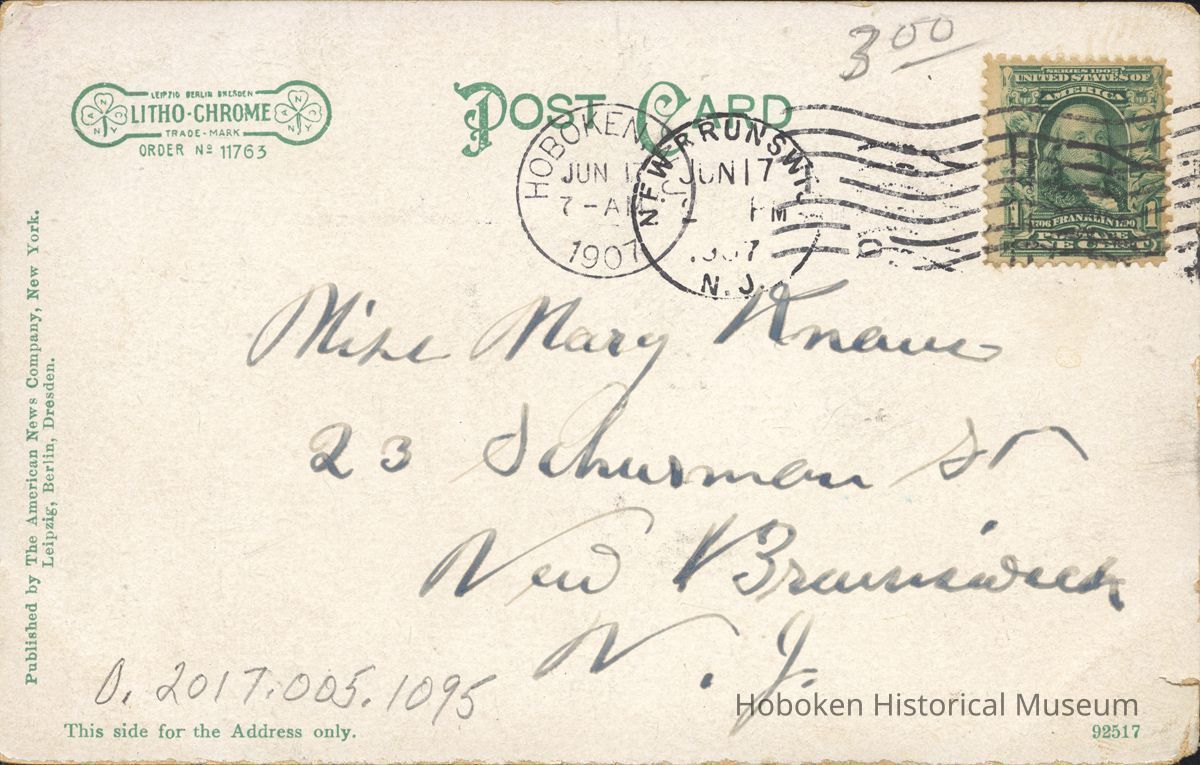 3 00
LEIPZIG BERLIN DRESDEN
LITHO-CHROME
TRADE-MARK
ORDER No 11763
N Y N Y
POST CARD
HOBOKEN, N.J.
JUN 17
7-AM
1907
NEW BRUNSWI
JUN 17
PM
1907
N.J.
SERIES 1902
UNITED STATES OF
AMERICA
1706 FRANKLIN 1790
POSTAGE
1 ONE CENT 1
Published by The American News Company, New York.
Leipzig, Berlin, Dresden.
Miss Mary
23 Schurman St
New Brunswick
N. J.
0. 2017.005.1095
Hoboken Historical Museum
This side for the Address only.
92517